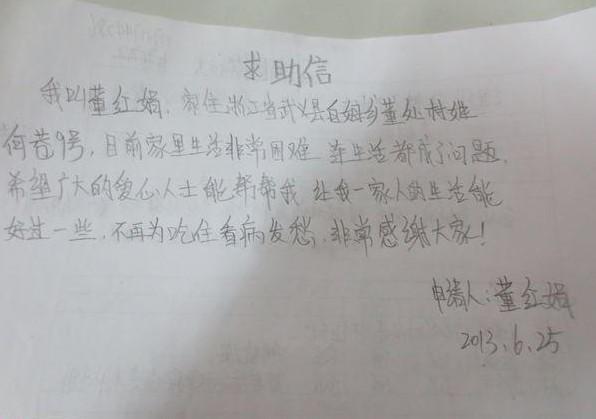 求助信
我叫董红娟,家住浙江省武义县白姆乡董处村姓
何巷9号,目前家里生活非常困难 连生活都成了问题,
希望广大的爱心人士能帮帮我 让我一家人的生活能
好过一些,不再为吃住看病发愁,非常感谢大家!
申请人:董红娟
2013.6.25